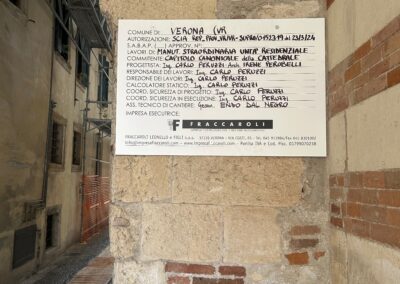 COMUNE DI: VERONA (VR)
AUTORIZZAZIONE: SCIA REP_PROV_VR/VR-SUPRO/0152319 del 23/3/24
S.A.B.A.P. (...) APPROV. N°:
LAVORI DI: MANUT. STRAORDINARIA UNITA' RESIDENZIALE
COMMITTENTE: CAPITOLO CANONICALE della CATTEDRALE
PROGETTISTA: Ing. CARLO PERUZZI Arch. IRENE PEROBELLI
RESPONSABILE DEI LAVORI: Ing. CARLO PERUZZI
DIREZIONE DEI LAVORI: Ing. CARLO PERUZZI
CALCOLATORE STATICO: Ing. CARLO PERUZZI
COORD. SICUREZZA DI PROGETTO: Ing. CARLO PERUZZI
COORD. SICUREZZA IN ESECUZIONE: Ing. CARLO PERUZZI
ASS. TECNICO DI CANTIERE: Geom. ENZO DAL NEGRO
IMPRESA ESECUTRICE:
F FRACCAROLI
FRACCAROLI LEONELLO e FIGLI s.a.s.
Partita IVA e Cod. Fisc. 01799070238